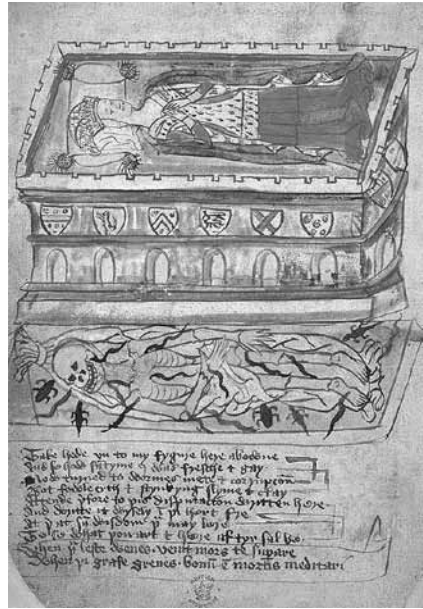 Take hede vn to my fygure here abowne
And se how sumtyme I was fressche & gay
Now turned to wormes mete & corrupcoun
Bot fowle erth & stynkyng slyme & clay
Attende þfore to þis disputacion written here
And writte it wysely in þi hert fre
þt þ at sū wisdom þu may lere
To se what þou art & here aftyr sal be
When þu leste wenes · venit mors te supare
When þi grafe grenes · bonū ē mortis meditari